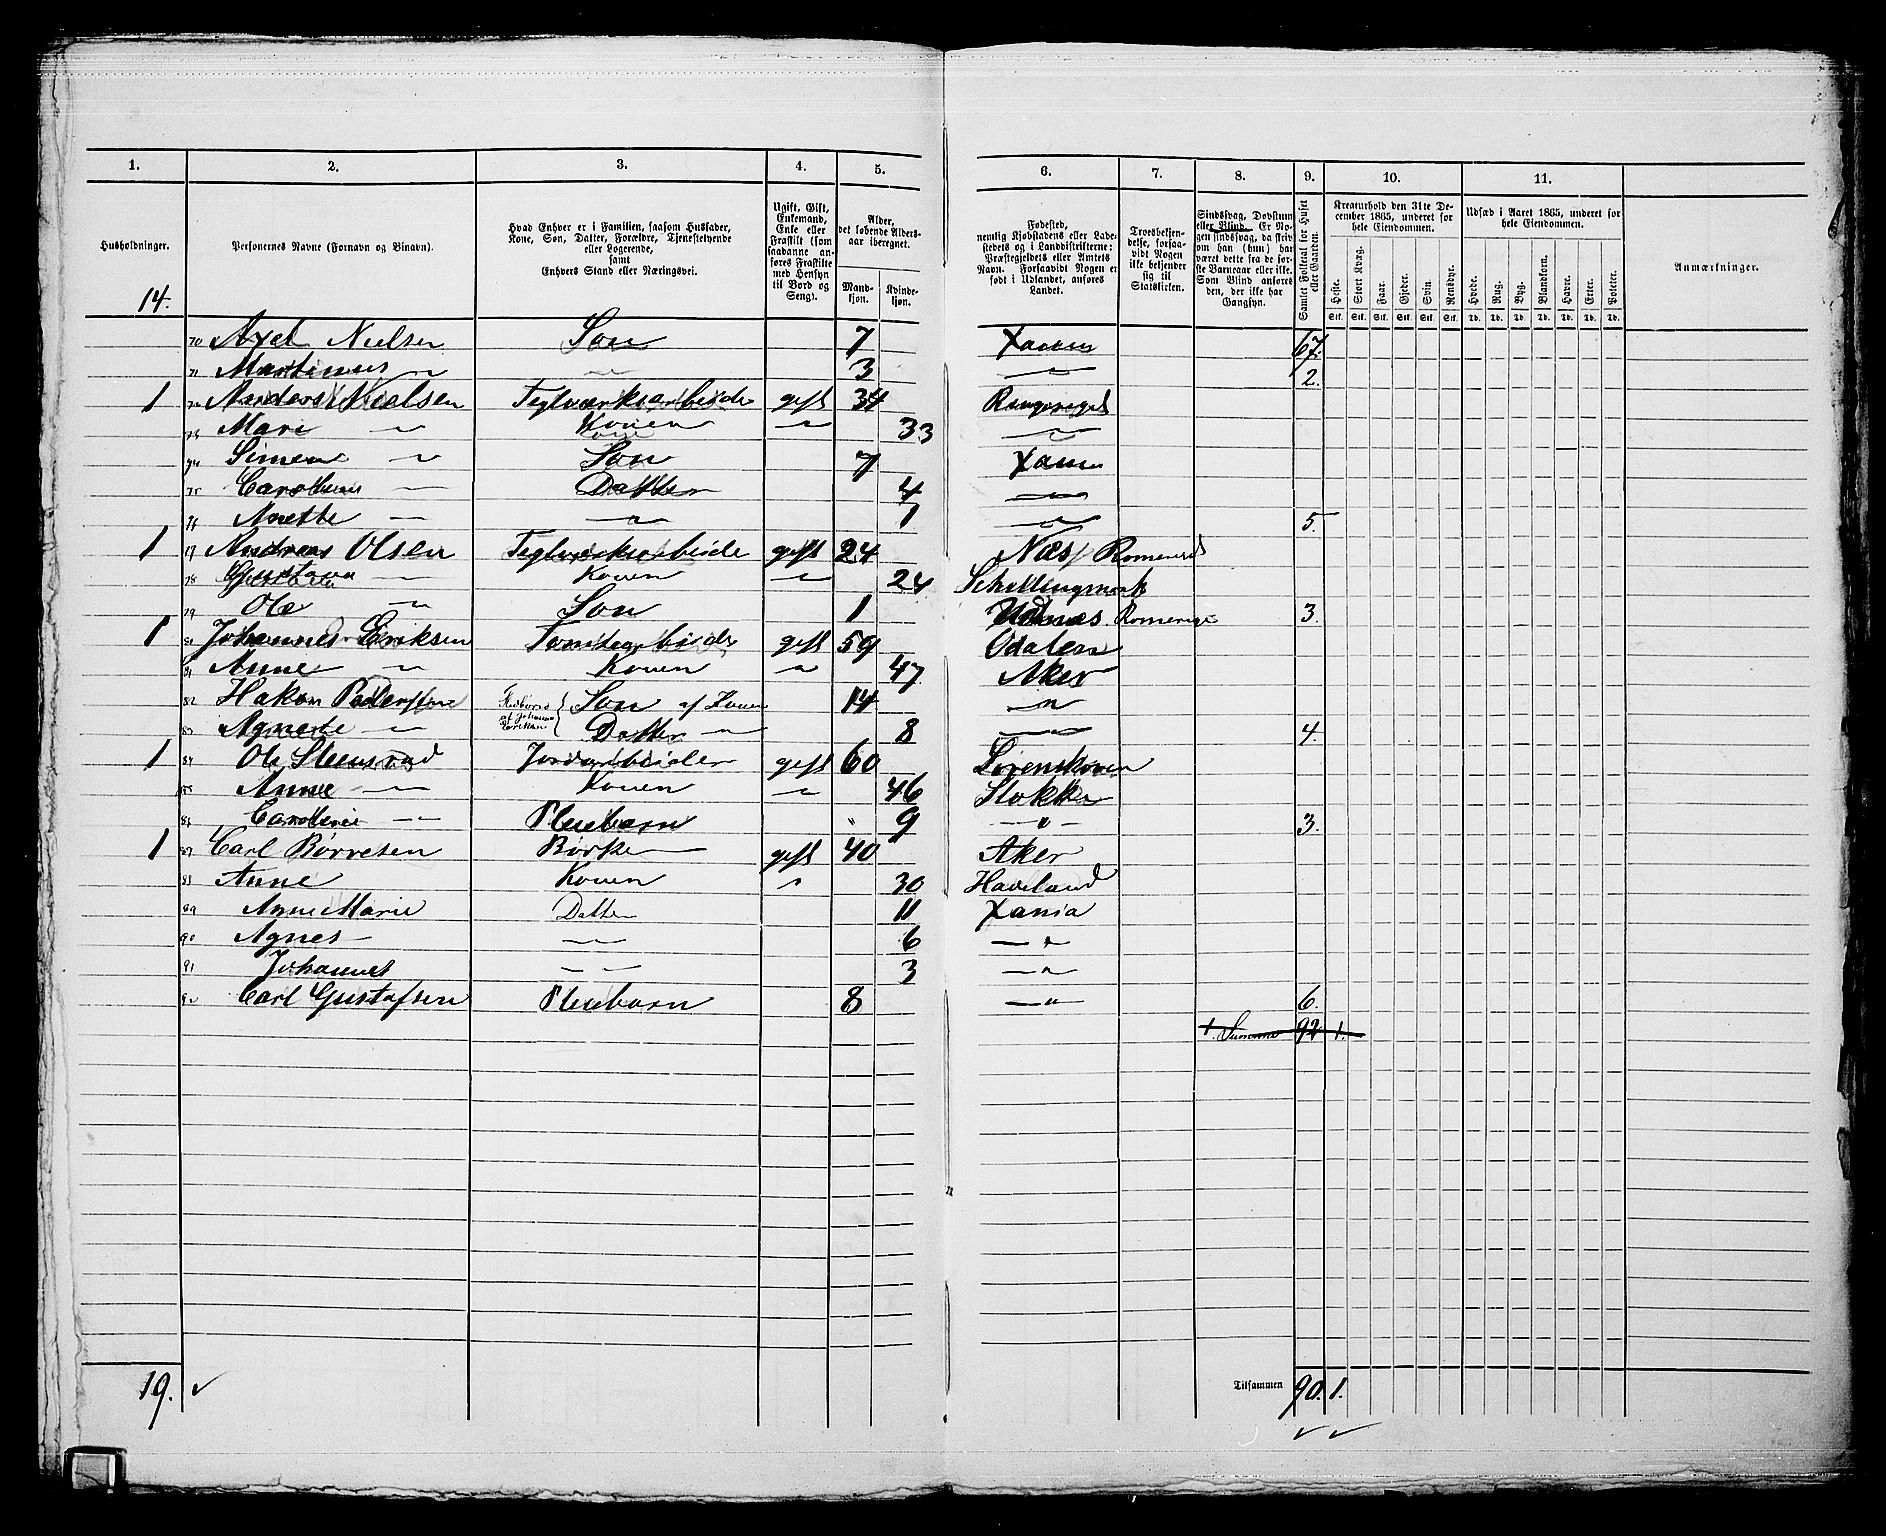 1. 2. 3. 4. 5. 6. 7. 8. 9. 10. 11.
Husholdninger.
Personernes Navne (Fornavn og Binavn).
Hvad Enhver er i Familien, saasom Husfader,
Kone, Søn, Datter, Forældre, Tjenestetyende
eller Logerende,
samt
Enhvers Stand eller Næringsvei.
Ugift, Gift,
Enkemand,
Enke eller
Fraskilt (som
saadanne an-
føres Fraskilte
med Hensyn
til Bord og
Seng).
Alder,
det løbende Alders-
aar iberegnet.
Mand-
kjøn.
Kvinde-
kjøn.
Fødested,
nemlig Kjøbstadens eller Lade-
stedets og i Landdistrikterne:
Præstegjeldets eller Amtets
Navn. Forsaavidt Nogen er
født i Udlandet, anføres
Landet.
Troesbekjen-
delse, forsaa-
vidt Nogen
ikke bekjender
sig til
Statskirken.
Sindssvag, Døvstum
eller Blind. Er No-
gen sindssvag, da skriv
om han (hun) har
været dette fra de før-
ste Barneaar eller ikke.
Som Blind anføres
den, der ikke har
Gangsyn.
Samlet Folketal for Huset
eller Gaarden.
Kreaturhold den 31te De-
cember 1865, underet for
hele Eiendommen.
Heste. Stort Kvæg. Faar. Gjeder. Svin. Rensdyr.
Stk. Stk. Stk. Stk. Stk. Stk.
Udsæd i Aaret 1865, underet for
hele Eiendommen.
Hvede. Rug. Byg. Blandkorn. Havre. Erter. Poteter.
Td. Td. Td. Td. Td. Td. Td.
Anmærkninger.
14.
70 Axel Nielsen Søn 7 Xania 67.
71 Martinus " " 3 " 2.
1 72 Anders Nielsen Teglværksarbeider gift 34 Ringeriget
73 Mari " Konen " 33 "
74 Simen " Søn 7 Xania
75 Caroline " Datter 4 "
76 Anette " " 1 " 5.
1 77 Andreas Olsen Teglværksarbeide gift 24 Næs Romerike
78 Gustava " Konen " 24
79 Ole " Søn 1 Romerige 3.
1 80 Johannes Eriksen Tomtearbeider gift 59 Odalen
81 Anne " Konen " 47 Aker
82 Hakon Pedersen Søn af Konen 14 "
af Johannes
Eriksen
83 Agnete " Datter " 8 " 4.
1 84 Ole Steensrud Jordarbeider gift 60 Lørenskoven
85 Anne " Konen " 46 Stokke
86 Caroline " Pleiebarn 9 " 3.
1 87 Carl Børresen gift 40 Aker
88 Anne Konen " 30 Haveland
89 Anne Marie Datter 11 Xania
90 Agnes " 6 "
91 " 3 "
92 Carl Gustafsen Pleiebarn 8 " 6.
Summa 92 1.
19. Tilsammen 90. 1.